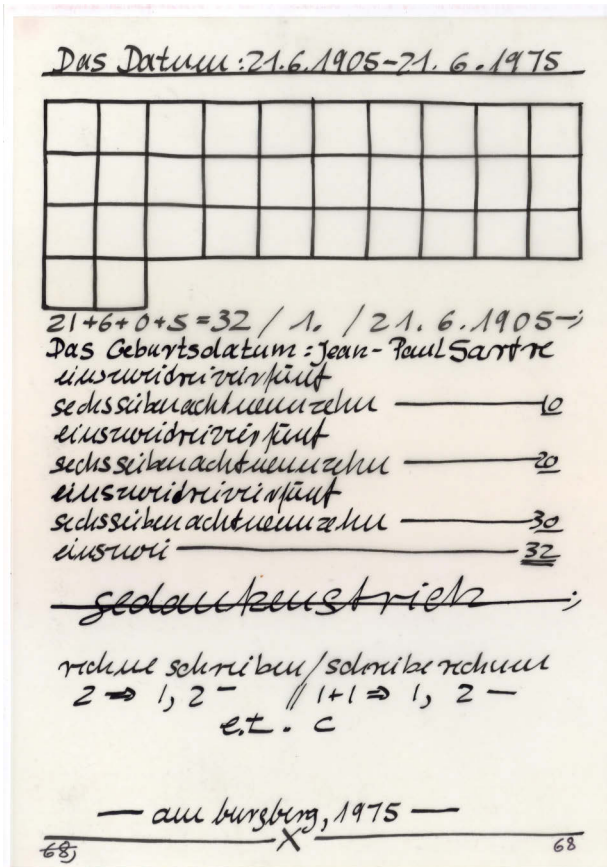 Das Datum: 21.6.1905-21.6.1975
21+6+0+5=32 / 1. / 21.6.1905-;
Das Geburtsdatum: Jean-Paul Sartre
einszweidreivierfünf
sechssiebenachtneunzehn — 10
einszweidreivierfünf
sechssiebenachtneunzehn — 20
einszweidreivierfünf
sechssiebenachtneunzehn — 30
einszwei — 32
gedankenstrich ;
rechne schreiben/schreibe rechnen
2 ⇒ 1, 2 – // 1+1 ⇒ 1, 2 —
e.t. c
— am burgberg, 1975 —
68, X 68